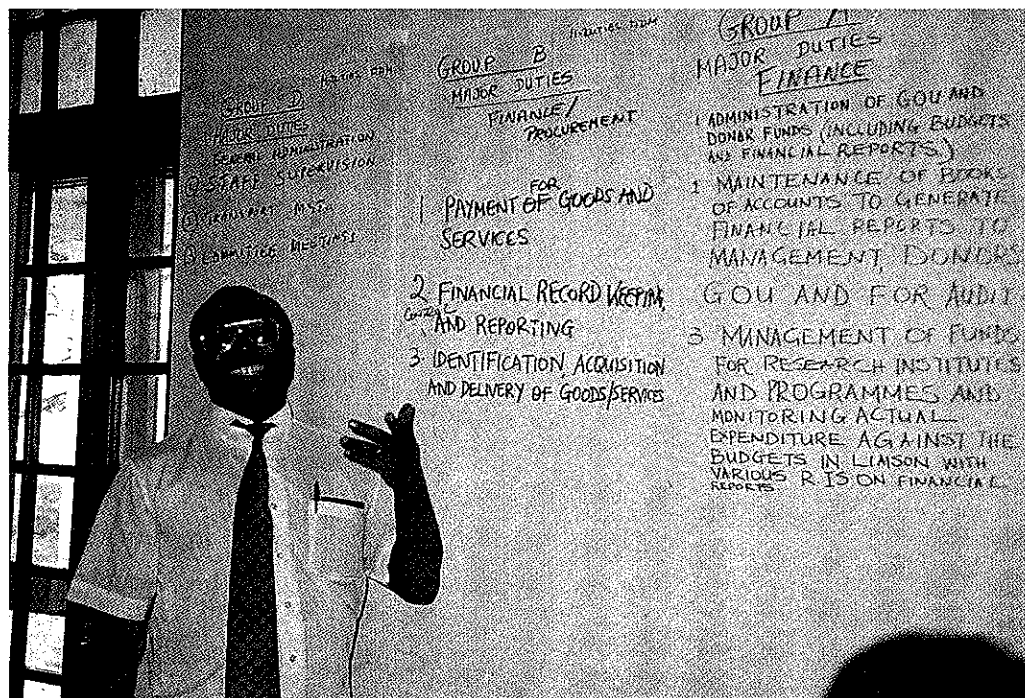 GROUP D
MAJOR DUTIES
GENERAL ADMINISTRATION
① STAFF SUPERVISION
② TRANSPORT MGT.
③ COMMITTEE MEETINGS
GROUP B
MAJOR DUTIES
FINANCE/
PROCUREMENT
1 PAYMENT OF FOR GOODS AND
SERVICES
2 FINANCIAL RECORD KEEPING,
AND REPORTING
3. IDENTIFICATION ACQUISITION
AND DELIVERY OF GOODS/SERVICES
GROUP A
MAJOR DUTIES
FINANCE
1 ADMINISTRATION OF GOU AND
DONAR FUNDS (INCLUDING BUDGETS
AND FINANCIAL REPORTS)
1 MAINTENANCE OF BOOKS
OF ACCOUNTS TO GENERATE
FINANCIAL REPORTS TO
MANAGEMENT, DONORS
GOU AND FOR AUDIT
3 MANAGEMENT OF FUNDS
FOR RESEARCH INSTITUTES
AND PROGRAMMES AND
MONITORING ACTUAL
EXPENDITURE AGAINST THE
BUDGETS IN LIAISON WITH
VARIOUS R IS ON FINANCIAL
REPORTS